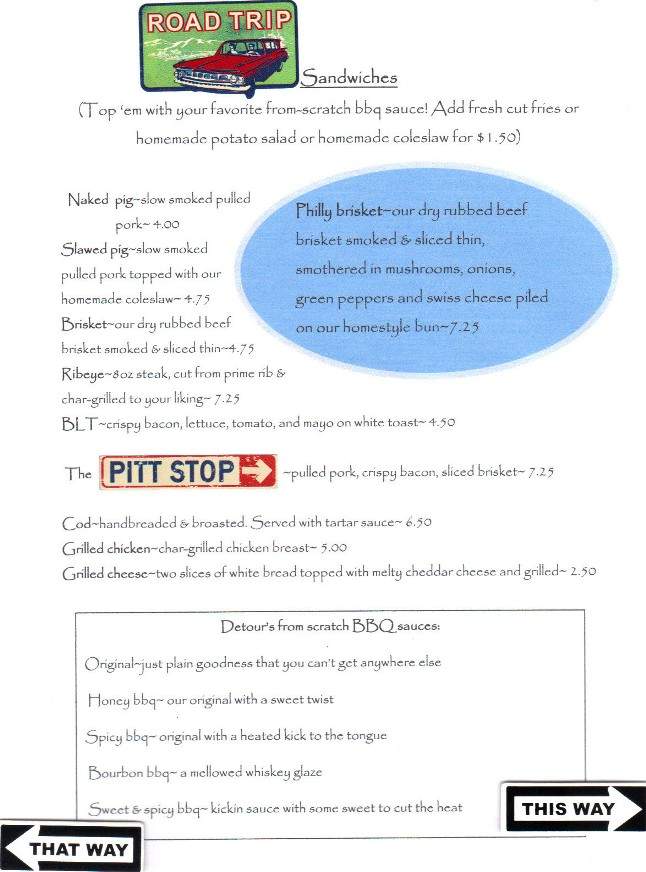 ROAD TRIP
Sandwiches
(Top 'em with your favorite from-scratch bbq sauce! Add fresh cut fries or
homemade potato salad or homemade coleslaw for $1.50)
Naked pig~slow smoked pulled
pork~ 4.00
Slawed pig~slow smoked
pulled pork topped with our
homemade coleslaw~ 4.75
Brisket~our dry rubbed beef
brisket smoked & sliced thin~4.75
Ribeye~8oz steak, cut from prime rib &
char-grilled to your liking~ 7.25
BLT~crispy bacon, lettuce, tomato, and mayo on white toast~ 4.50
Philly brisket~our dry rubbed beef
brisket smoked & sliced thin,
smothered in mushrooms, onions,
green peppers and swiss cheese piled
on our homestyle bun~7.25
The PITT STOP ~pulled pork, crispy bacon, sliced brisket~ 7.25
Cod~handbreaded & broasted. Served with tartar sauce~ 6.50
Grilled chicken~char-grilled chicken breast~ 5.00
Grilled cheese~two slices of white bread topped with melty cheddar cheese and grilled~ 2.50
Detour's from scratch BBQ sauces:
Original~just plain goodness that you can't get anywhere else
Honey bbq~ our original with a sweet twist
Spicy bbq~ original with a heated kick to the tongue
Bourbon bbq~ a mellowed whiskey glaze
Sweet & spicy bbq~ kickin sauce with some sweet to cut the heat
THIS WAY
THAT WAY